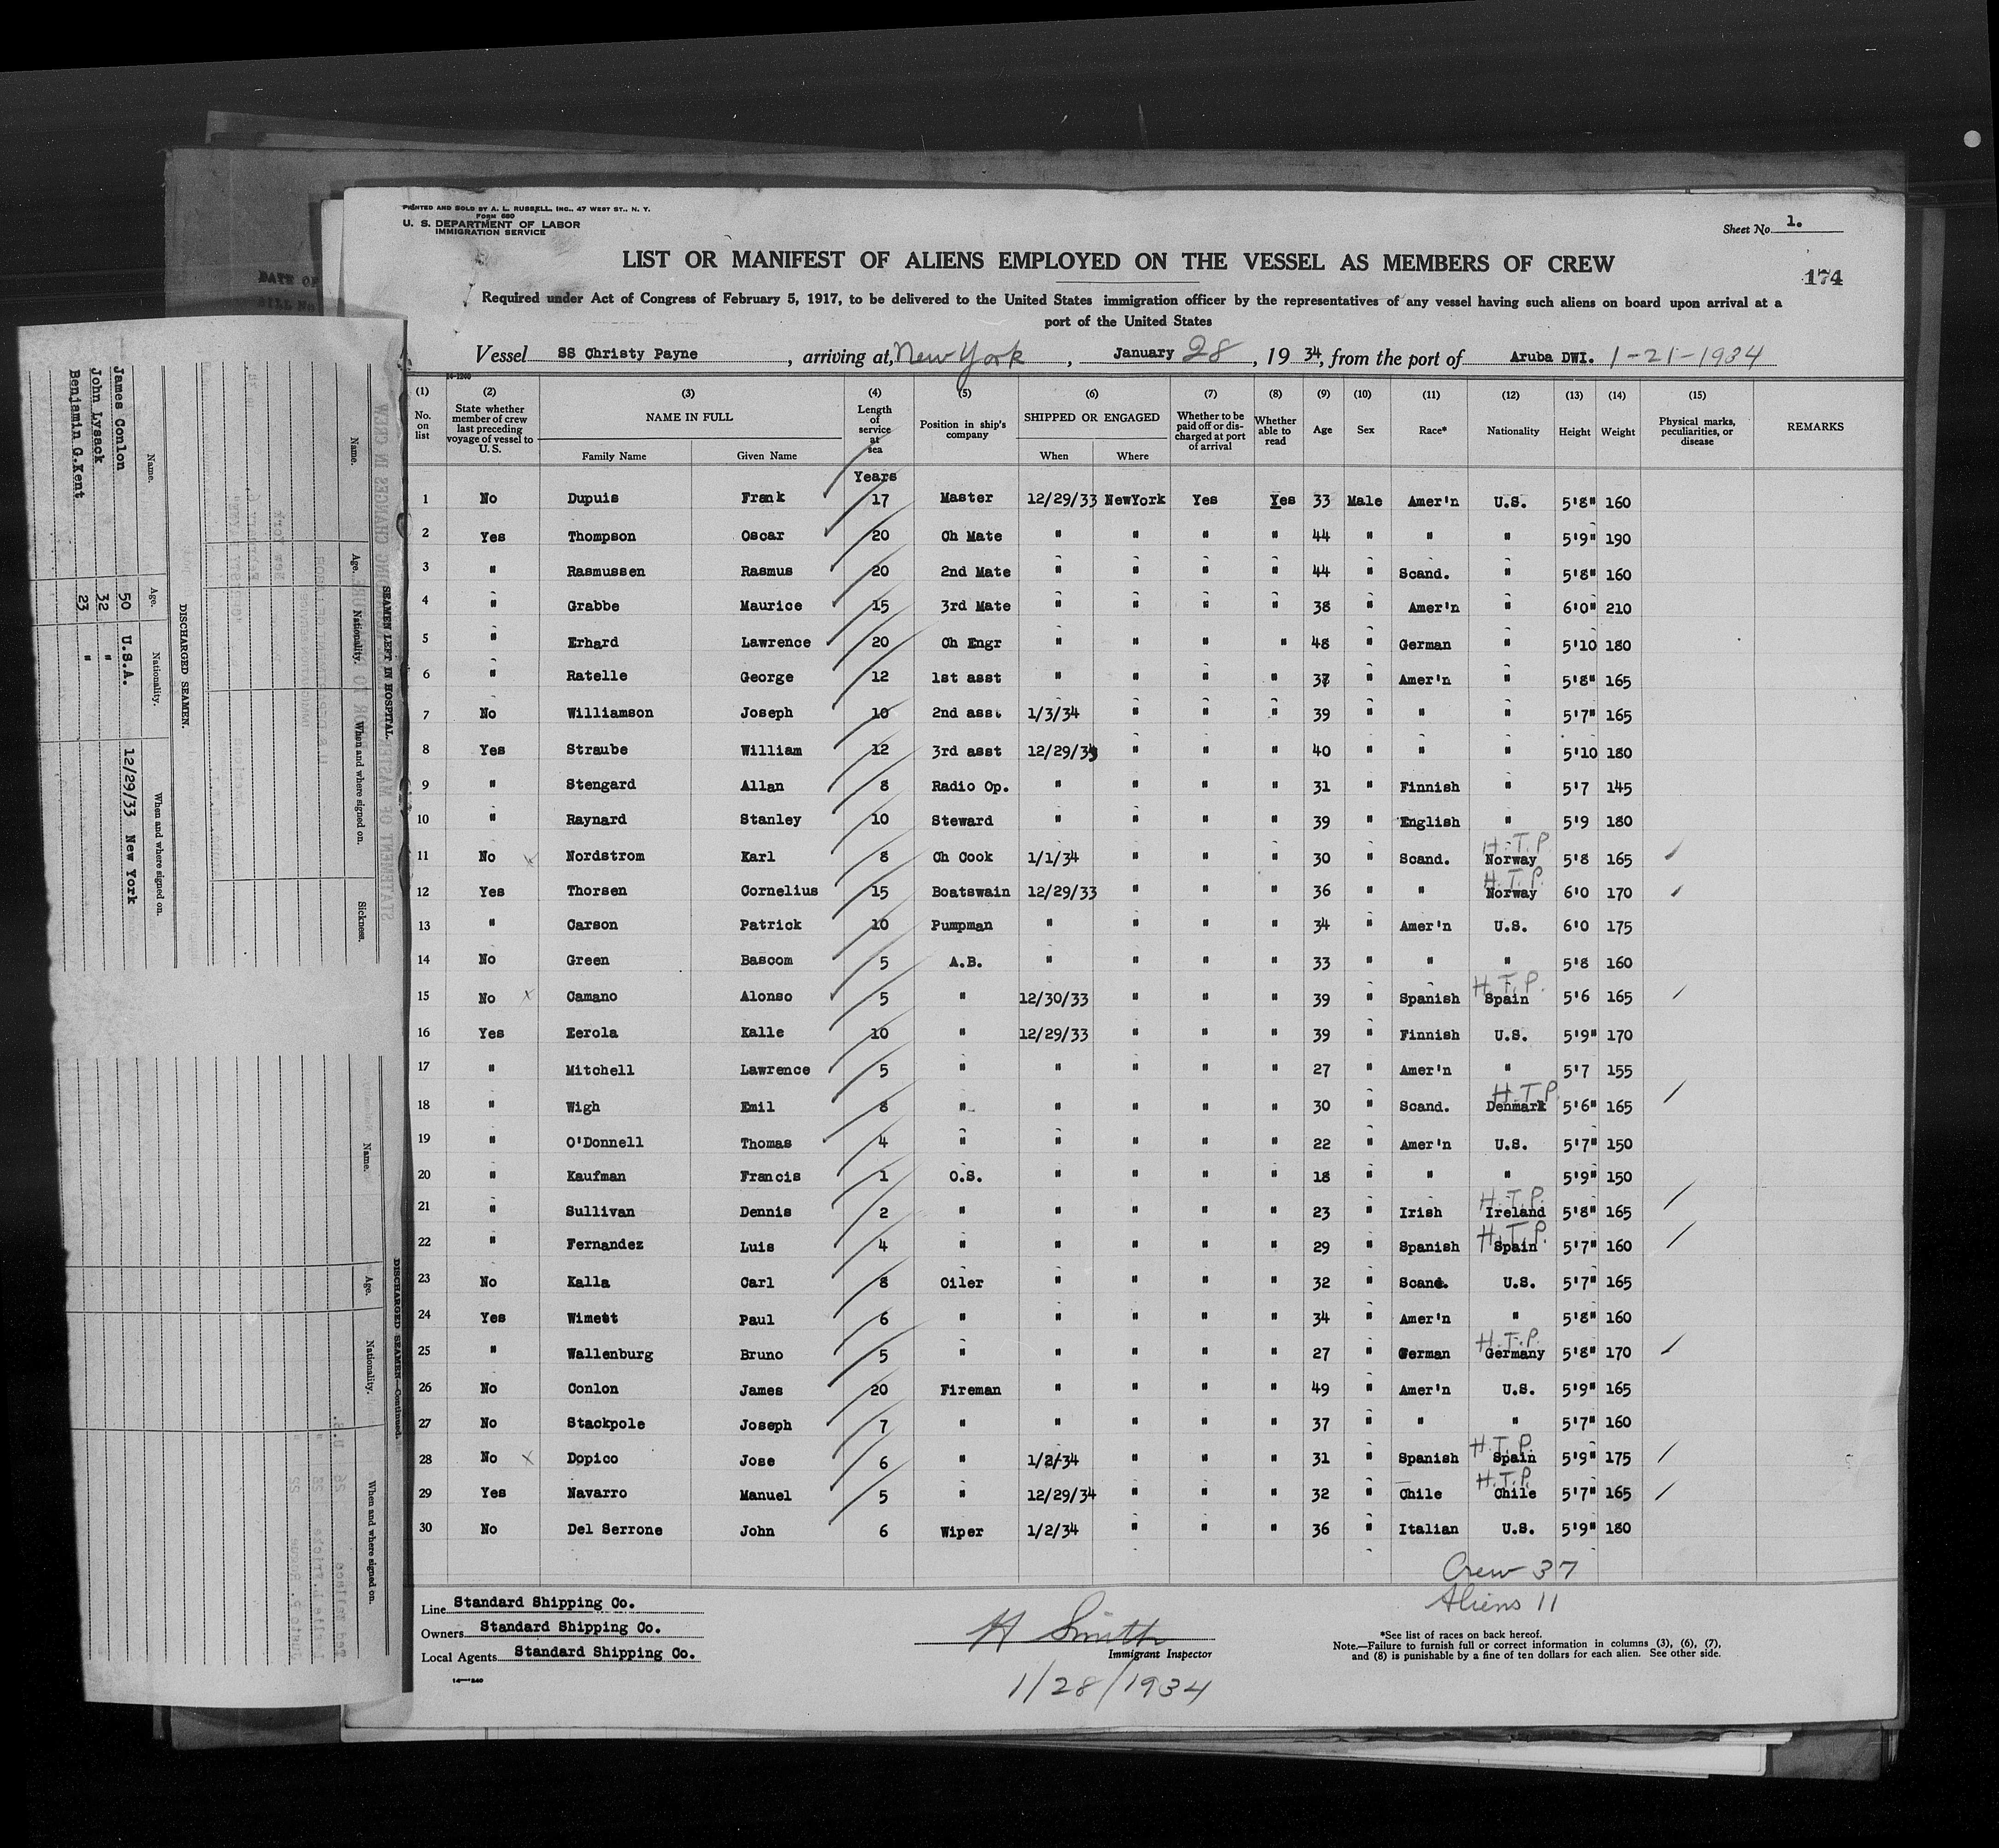 PRINTED AND SOLD BY A. L. RUSSELL, INC., 47 WEST ST., N. Y.
FORM 680
U. S. DEPARTMENT OF LABOR
IMMIGRATION SERVICE
Sheet No. 1.
LIST OR MANIFEST OF ALIENS EMPLOYED ON THE VESSEL AS MEMBERS OF CREW
174
Required under Act of Congress of February 5, 1917, to be delivered to the United States immigration officer by the representatives of any vessel having such aliens on board upon arrival at a
port of the United States
Vessel SS Christy Payne, arriving at, New York, January 28, 19 34, from the port of Aruba DWI. 1-21-1934
14-1240
(1) (2) (3) (4) (5) (6) (7) (8) (9) (10) (11) (12) (13) (14) (15)
No. on list State whether member of crew last preceding voyage of vessel to U.S. NAME IN FULL Length of service at sea Position in ship's company SHIPPED OR ENGAGED Whether to be paid off or discharged at port of arrival Whether able to read Age Sex Race* Nationality Height Weight Physical marks, peculiarities, or disease REMARKS
Family Name Given Name When Where
Years
1 No Dupuis Frank 17 Master 12/29/33 NewYork Yes Yes 33 Male Amer'n U.S. 5'8" 160
2 Yes Thompson Oscar 20 Ch Mate " " " " 44 " " " 5'9" 190
3 " Rasmussen Rasmus 20 2nd Mate " " " " 44 " Scand. " 5'8" 160
4 " Grabbe Maurice 15 3rd Mate " " " " 38 " Amer'n " 6'0" 210
5 " Erhard Lawrence 20 Ch Engr " " " " 48 " German " 5'10 180
6 " Ratelle George 12 1st asst " " " " 37 " Amer'n " 5'8" 165
7 No Williamson Joseph 10 2nd asst 1/3/34 " " " 39 " " " 5'7" 165
8 Yes Straube William 12 3rd asst 12/29/33 " " " 40 " " " 5'10 180
9 " Stengard Allan 8 Radio Op. " " " " 31 " Finnish " 5'7 145
10 " Raynard Stanley 10 Steward " " " " 39 " English " 5'9 180
H.T.P
11 No x Nordstrom Karl 8 Ch Cook 1/1/34 " " " 30 " Scand. Norway 5'8 165
H.T.P.
12 Yes Thorsen Cornelius 15 Boatswain 12/29/33 " " " 36 " " Norway 6'0 170
13 " Carson Patrick 10 Pumpman " " " " 34 " Amer'n U.S. 6'0 175
14 No Green Bascom 5 A.B. " " " " 33 " " " 5'8 160
H.T.P.
15 No x Camano Alonso 5 " 12/30/33 " " " 39 " Spanish Spain 5'6 165
16 Yes Eerola Kalle 10 " 12/29/33 " " " 39 " Finnish U.S. 5'9" 170
17 " Mitchell Lawrence 5 " " " " " 27 " Amer'n " 5'7 155
H.T.P.
18 " Wigh Emil 8 " " " " " 30 " Scand. Denmark 5'6" 165
19 " O'Donnell Thomas 4 " " " " " 22 " Amer'n U.S. 5'7" 150
20 " Kaufman Francis 1 O.S. " " " " 18 " " " 5'9" 150
H.T.P.
21 " Sullivan Dennis 2 " " " " " 23 " Irish Ireland 5'8" 165
H.T.P.
22 " Fernandez Luis 4 " " " " " 29 " Spanish Spain 5'7" 160
23 No Kalla Carl 8 Oiler " " " " 32 " Scand. U.S. 5'7" 165
24 Yes Wimett Paul 6 " " " " " 34 " Amer'n " 5'8" 160
H.T.P.
25 " Wallenburg Bruno 5 " " " " " 27 " German Germany 5'8" 170
26 No Conlon James 20 Fireman " " " " 49 " Amer'n U.S. 5'9" 165
27 No Stackpole Joseph 7 " " " " " 37 " " " 5'7" 160
H.T.P.
28 No x Dopico Jose 6 " 1/2/34 " " " 31 " Spanish Spain 5'9" 175
H.T.P.
29 Yes Navarro Manuel 5 " 12/29/34 " " " 32 " Chile Chile 5'7" 165
30 No Del Serrone John 6 Wiper 1/2/34 " " " 36 " Italian U.S. 5'9" 180
Crew 37
Aliens 11
Line Standard Shipping Co.
Owners Standard Shipping Co.
Local Agents Standard Shipping Co.
14—1240
H Smith
Immigrant Inspector
1/28/1934
*See list of races on back hereof.
Note.—Failure to furnish full or correct information in columns (3), (6), (7),
and (8) is punishable by a fine of ten dollars for each alien. See other side.
SEAMEN LEFT IN HOSPITAL.
Name. Age. Nationality. When and where signed on. Sickness.
DISCHARGED SEAMEN.
Name. Age. Nationality. When and where signed on.
James Conlon 50 U.S.A. 12/29/33 New York
John Lysack 32 "
Benjamin G.Kent 23 "
DISCHARGED SEAMEN—Continued.
Name. Age. Nationality. When and where signed on.
DATE OF
BILL NO